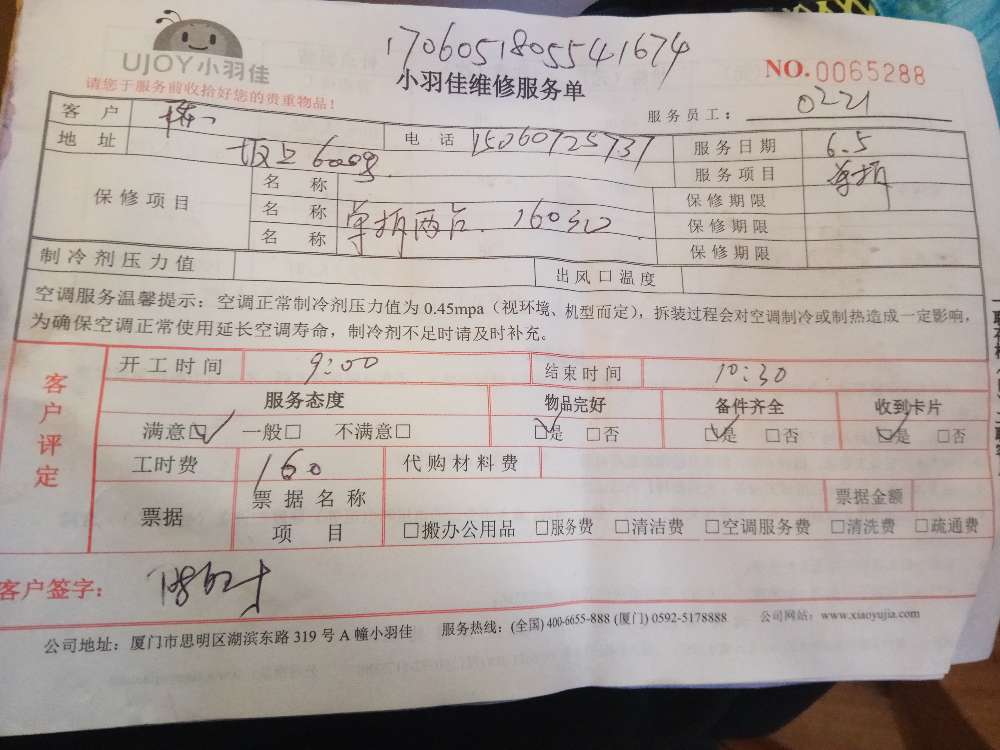 1706051805541674
UJOY小羽佳
小羽佳维修服务单
NO.0065288
请您于服务前收拾好您的贵重物品！
服务员工： 0221
客 户
电 话 15060725737 服务日期 6.5
地 址 坂上600号
服务项目 单拆
保修项目 名 称 保修期限
名 称 单拆两台. 160元 保修期限
名 称 保修期限
制冷剂压力值 出风口温度
空调服务温馨提示：空调正常制冷剂压力值为 0.45mpa（视环境、机型而定），拆装过程会对空调制冷或制热造成一定影响，
为确保空调正常使用延长空调寿命，制冷剂不足时请及时补充。
客户评定
开工时间 9:00 结束时间 10:30
服务态度 物品完好 备件齐全 收到卡片
满意☑ 一般□ 不满意□ ☑是 □否 ☑是 □否 ☑是 □否
工时费 160 代购材料费
票据 票据名称 票据金额
项 目 □搬办公用品 □服务费 □清洁费 □空调服务费 □清洗费 □疏通费
客户签字：
公司地址：厦门市思明区湖滨东路 319 号 A 幢小羽佳 服务热线：(全国) 400-6655-888 (厦门) 0592-5178888 公司网站：www.xiaoyujia.com